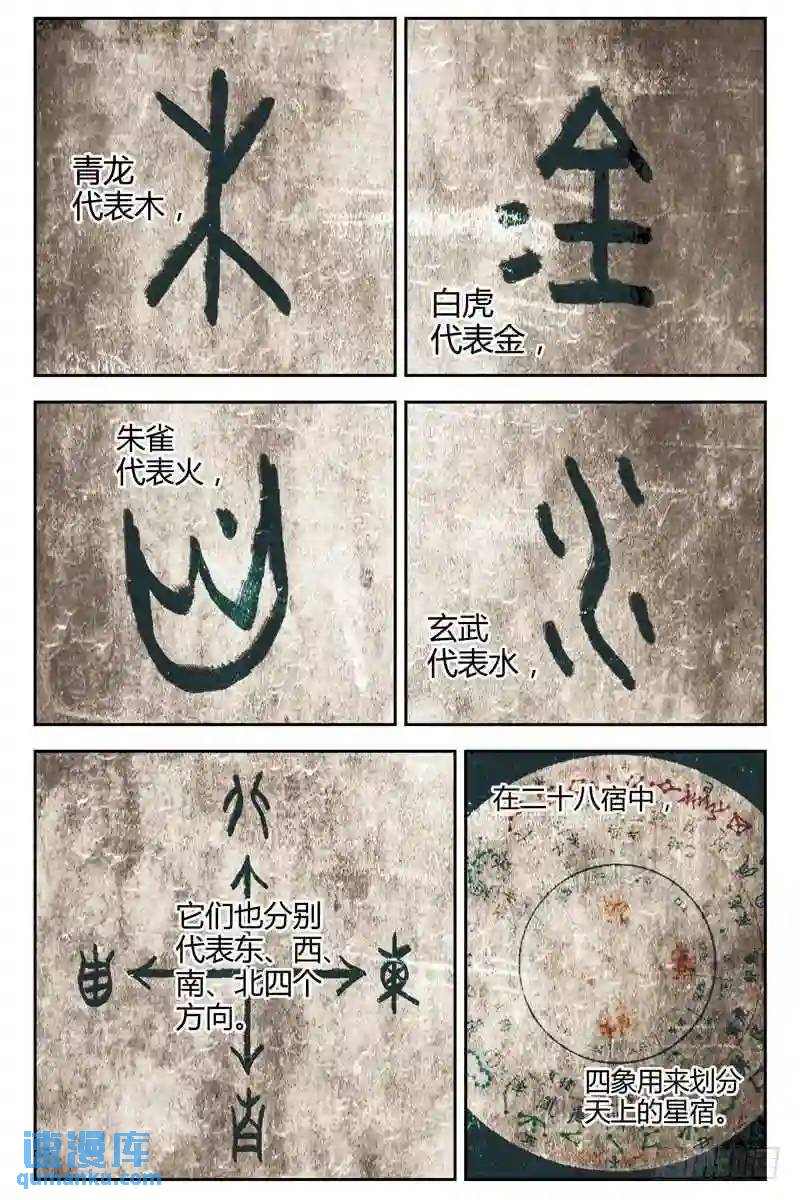 青龙
代表木，
白虎
代表金，
朱雀
代表火，
玄武
代表水，
它们也分别
代表东、西、
南、北四个
方向。
在二十八宿中，
四象用来划分
天上的星宿。
速漫库
qumanku.com